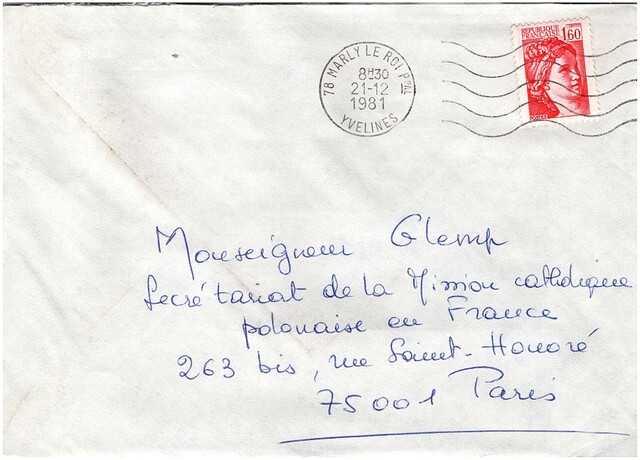 78 MARLY LE ROI Ppal
8H30
21-12
1981
YVELINES
REPUBLIQUE
FRANCAISE
1,60
Monseigneur Glemp
Secrétariat de la Mission catholique
polonaise en France
263 bis, rue Saint-Honoré
75001 Paris